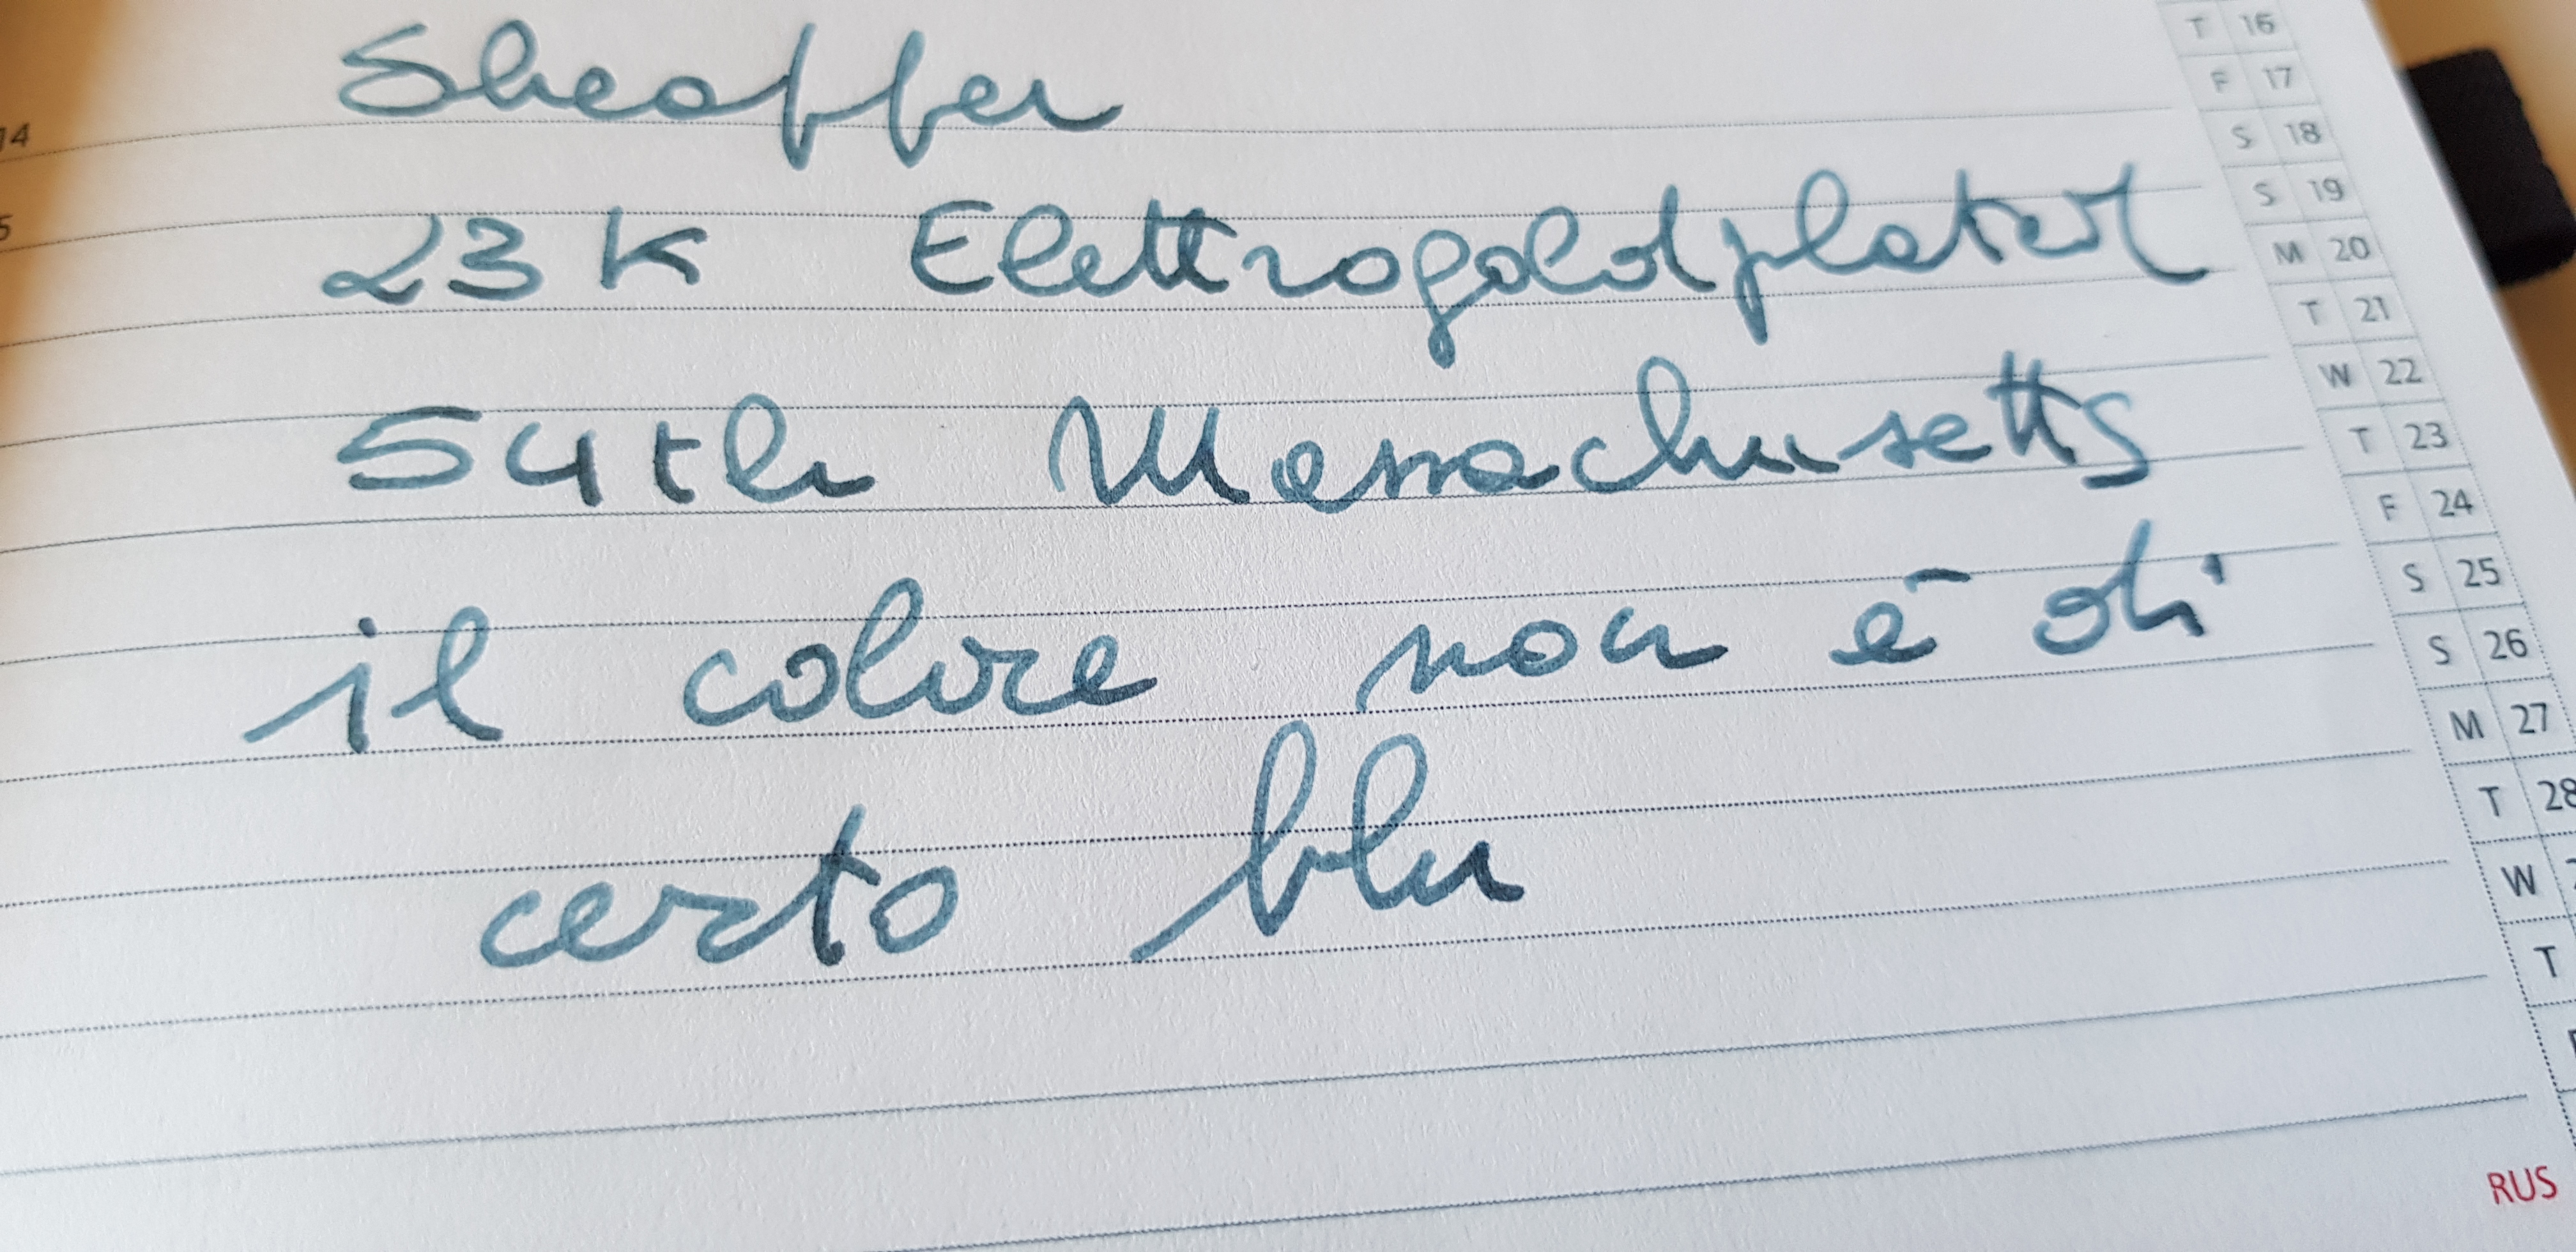 Sheaffer
23K Elettrogoldplated
54th Massachusetts
il colore non è di
certo blu
14
5
T 16
F 17
S 18
S 19
M 20
T 21
W 22
T 23
F 24
S 25
S 26
M 27
T 28
W 2
T
RUS